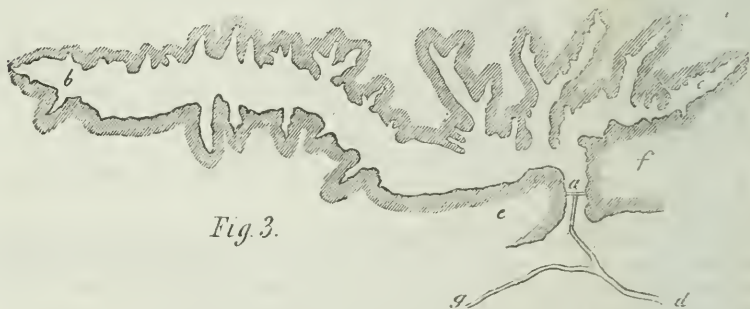 b
c
f
a
e
Fig. 3.
g
d